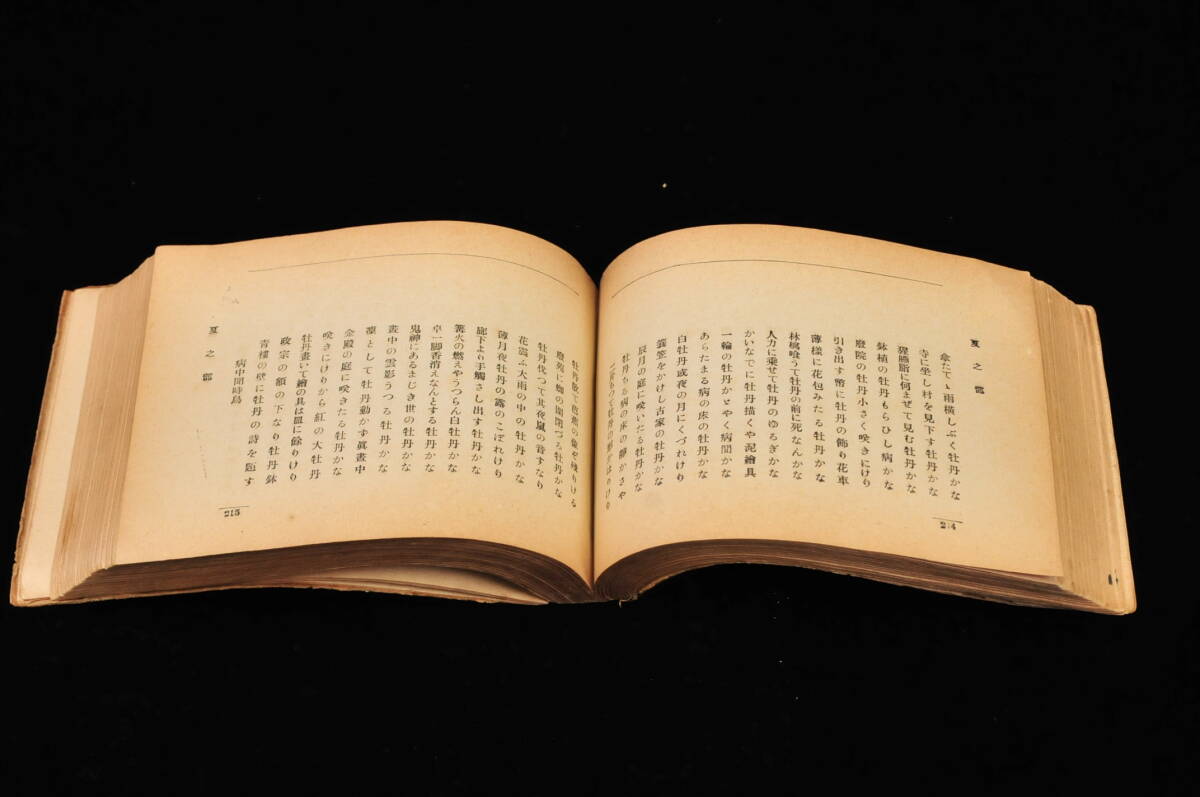 夏之部
傘たてゝ雨横しぶく牡丹かな
寺に坐し村を見下す牡丹かな
猩臙脂に何まぜて見む牡丹かな
鉢植の牡丹もらひし病かな
廢院の牡丹小さく咲きにけり
引き出す幣に牡丹の飾り花車
薄樣に花包みたる牡丹かな
林檎喰うて牡丹の前に死なんかな
人力に乘せて牡丹のゆるぎかな
かいなでに牡丹描くや泥繪具
一輪の牡丹かゞやく病間かな
あらたまる病の床の牡丹かな
白牡丹或夜の月にくづれけり
蓑笠をかけし古家の牡丹かな
辰月の庭に咲いたる牡丹かな
牡丹ちる病の床の靜かさや
214
牡丹散て
廢苑に蜘の圍閉づる牡丹かな
牡丹伐つて其夜嵐の音すなり
花震ふ大雨の中の牡丹かな
薄月夜牡丹の露のこぼれけり
廊下より手觸さし出す牡丹かな
篝火の燃えやうつらん白牡丹かな
卓一脚香消えなんとする牡丹かな
鬼神にあるまじき世の牡丹かな
晝中の雲影うつる牡丹かな
凛として牡丹動かず眞晝中
金殿の庭に咲きたる牡丹かな
咲きにけりから紅の大牡丹
牡丹畫いて繪の具は皿に餘りけり
政宗の額の下なり牡丹鉢
青樓の壁に牡丹の詩を題す
病中聞時鳥
夏之部
215